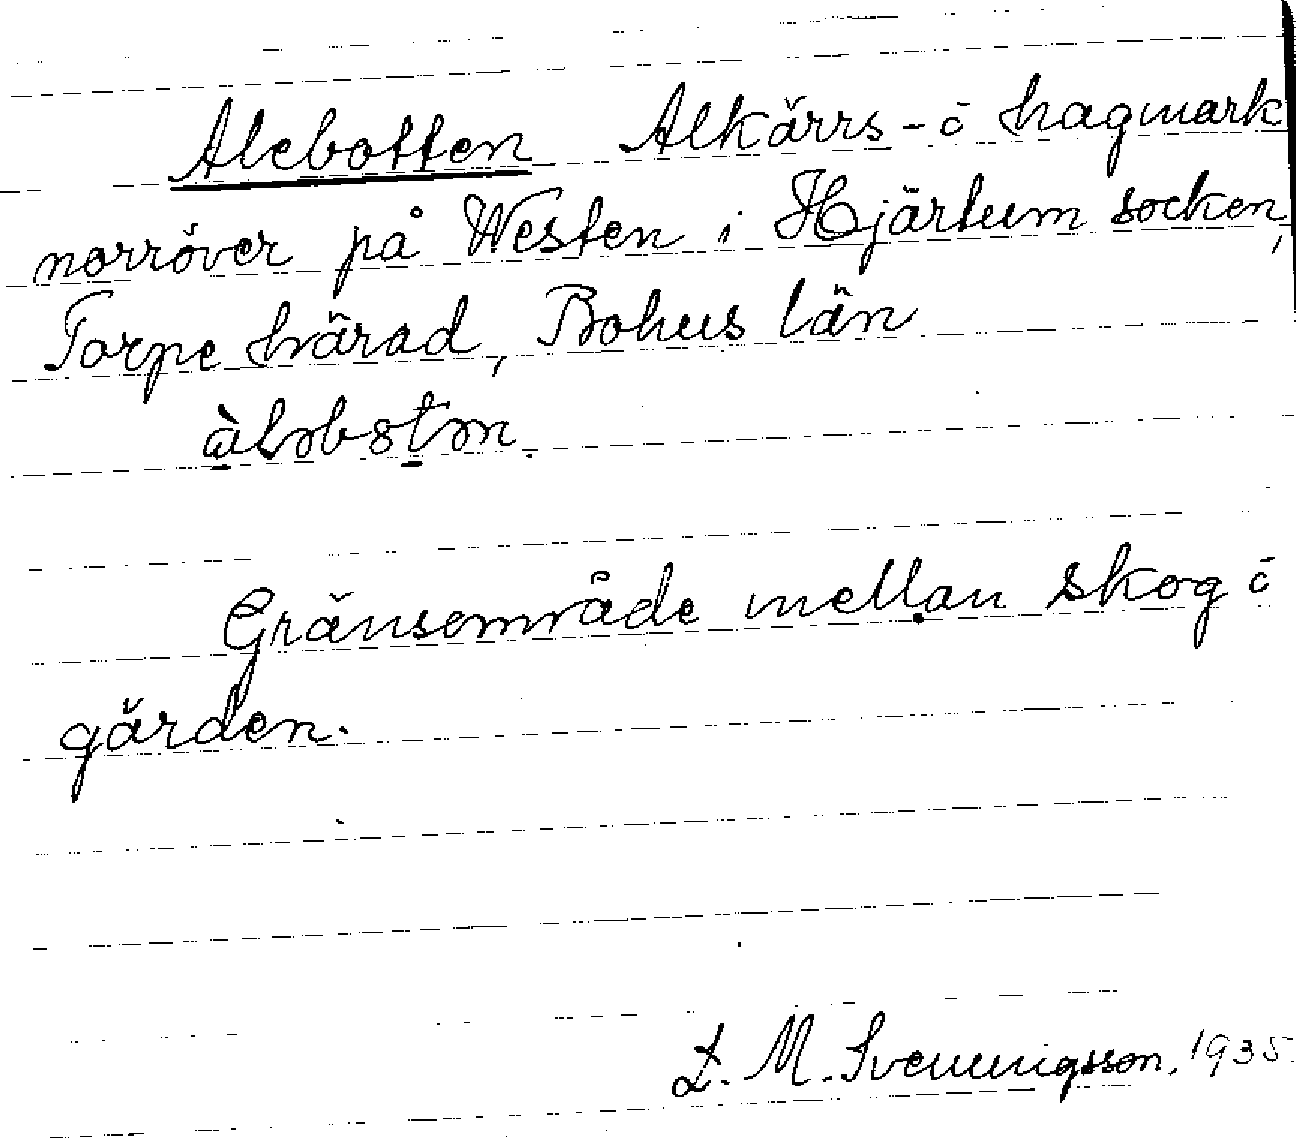 Alebotten Alkärrs- ō hagmark
norröver på Westen i Hjärtum socken,
Torpe härad, Bohus län
àlɷbstɷn.
Gränsområde mellan skog ō
gärden.
L. M. Svenningsson, 1935.